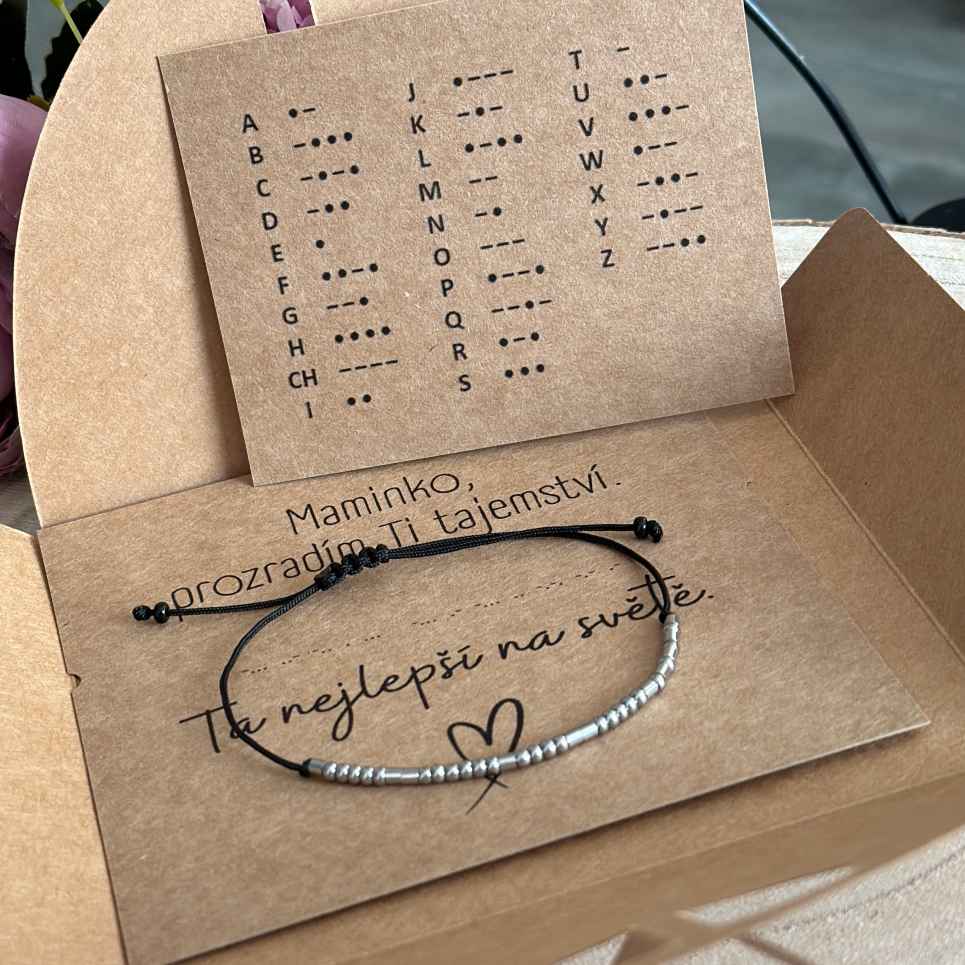 A •–
B –•••
C –•–•
D –••
E •
F ••–•
G ––•
H ••••
CH ––––
I ••
J •–––
K –•–
L •–••
M ––
N –•
O –––
P •––•
Q ––•–
R •–•
S •••
T –
U ••–
V •••–
W •––
X –••–
Y –•––
Z ––••
Maminko,
prozradím Ti tajemství.
Ta nejlepší na světě.